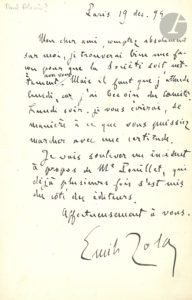 Paris 19 déc. 94
Mon cher ami, comptez absolument
sur moi, je trouverai bien une fa-
çon pour que la Société soit net-
tement avec vous. Mais il faut que j'attende
lundi, car j'ai besoin du comité.
Lundi soir, je vous écrirai, de
manière à ce que vous puissiez
marcher avec une certitude.
Je vais soulever un incident
à propos de Me Pouillet, qui
déjà plusieurs fois s'est mis
du côté des éditeurs.
Affectueusement à vous.
Emile Zola